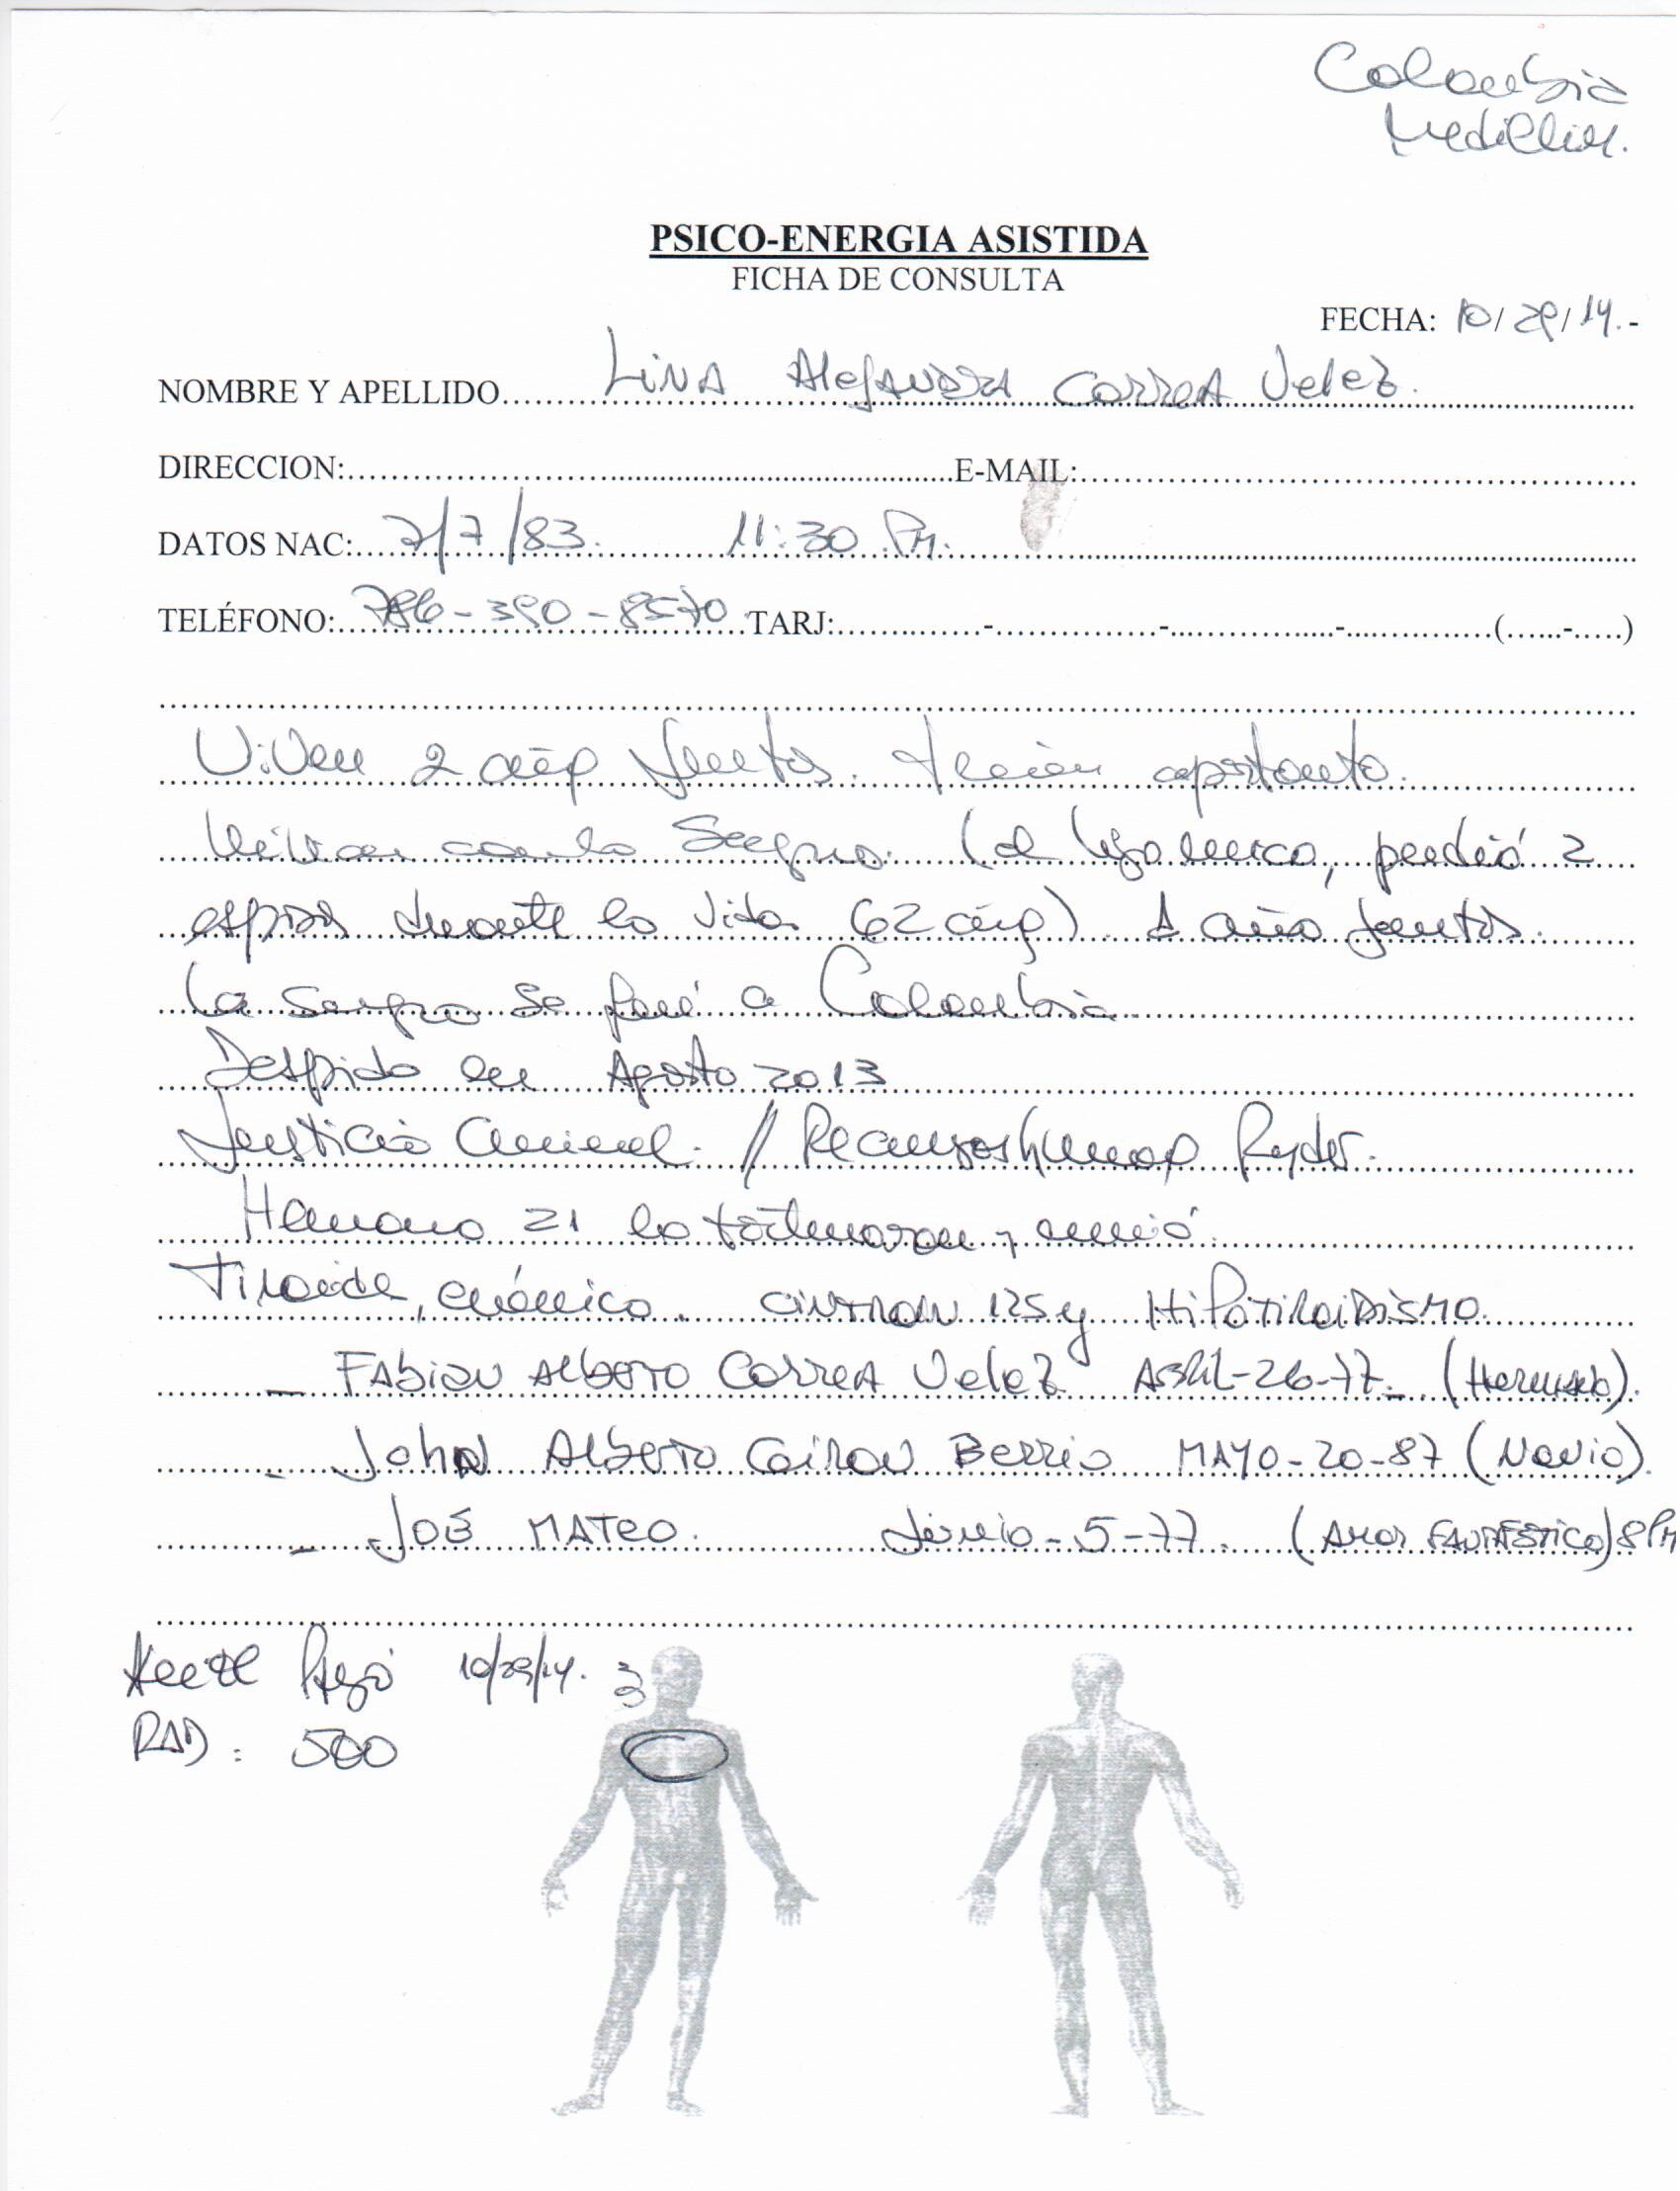 Colombia
Medellin.
PSICO-ENERGIA ASISTIDA
FICHA DE CONSULTA
FECHA: 10/29/14.-
NOMBRE Y APELLIDO Lina Alejandra Correa Velez.
DIRECCION: E-MAIL:
DATOS NAC: 7/7/83. 11:30 PM.
TELÉFONO: 786-390-8570 TARJ: - - - ( - )
Viven 2 años juntos. apartamento.
con la Suegra. (el hijo unico, perdió 2
esposos durante la vida (62 años). 1 año juntos.
La Suegra se fué a Colombia.
Despido en Agosto 2013
Justicia Criminal. // Recursos humanos Ryder.
Hermano 21 lo torturaron y murió.
Tiroide, crónico. 125 y HiPoTiroiDisMO.
- FAbian Alberto Correa Velez Abril-26-77- (Hermano).
- John Alberto Berrio MAYO-20-87 (Novio).
- José MATEO. Junio-5-77. (Amor FANTÁSTICO) 8PM
10/29/14.
RAD: 500